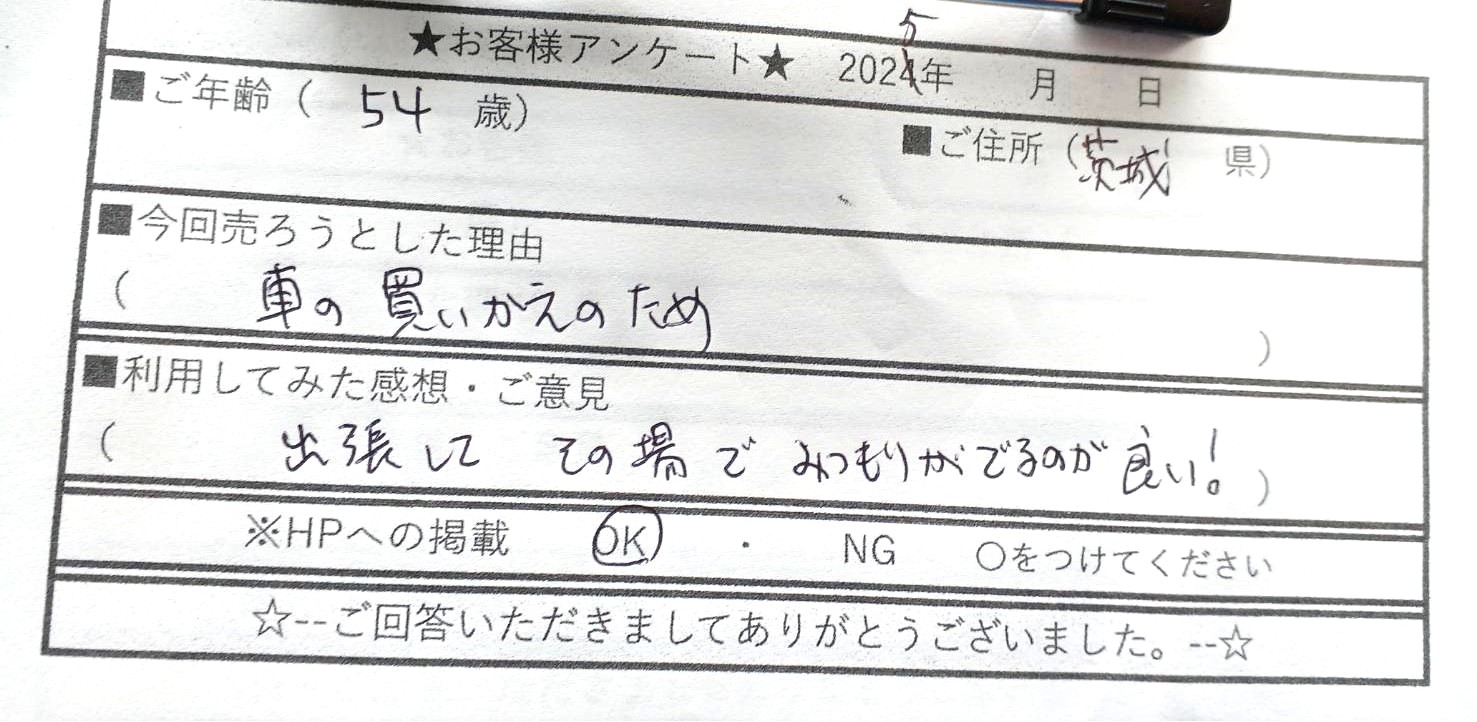 ★お客様アンケート★ 2025年 月 日
■ご年齢（ 54 歳）
■ご住所（茨城 県）
■今回売ろうとした理由
（ 車の買いかえのため ）
■利用してみた感想・ご意見
（ 出張して その場で みつもりがでるのが良い! ）
※HPへの掲載 OK ・ NG ○をつけてください
☆--ご回答いただきましてありがとうございました。--☆